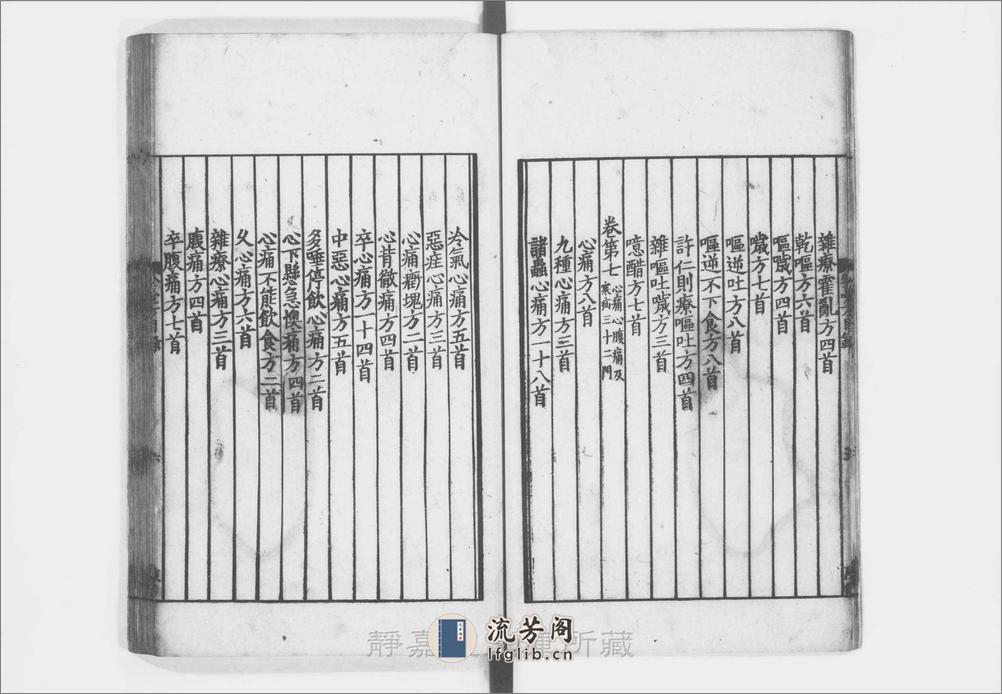 雜療霍亂方四首
乾嘔方六首
嘔噦方四首
噦方七首
嘔逆吐方八首
嘔逆不下食方八首
許仁則療嘔吐方四首
雜嘔吐噦方三首
噫醋方七首
卷第七 心痛心腹痛及寒病三十二門
心痛方八首
九種心痛方三首
諸蟲心痛方一十八首
冷氣心痛方五首
惡疰心痛方三首
心痛癥塊方二首
心背徹痛方四首
卒心痛方一十四首
中惡心痛方五首
多唾停飲心痛方二首
心下懸急懊痛方四首
心痛不能飲食方二首
久心痛方六首
雜療心痛方三首
腹痛方四首
卒腹痛方七首
靜嘉 所藏
流芳阁
lfglib.cn